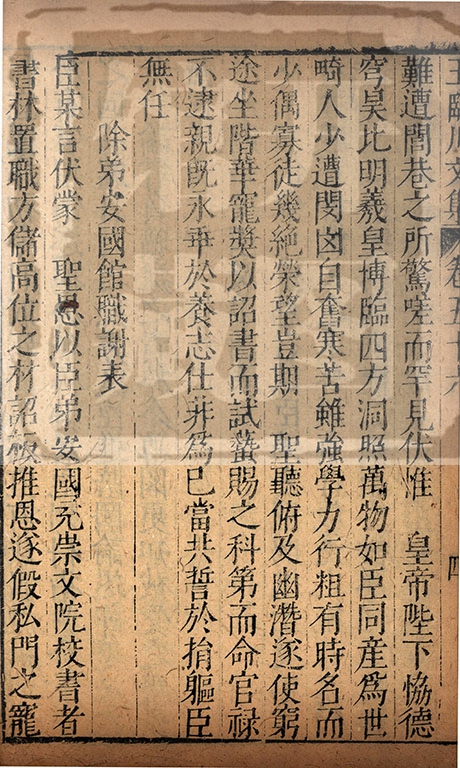 王臨川文集 卷五十六 四
難遭閭巷之所驚嗟而罕見伏惟 皇帝陛下恊德
穹昊比明羲皇博臨四方洞照萬物如臣同産爲世
畸人少遭閔凶自奮寒苦雖強學力行粗有時名而
少偶寡徒幾絶榮望豈期 聖聽俯及幽潛遂使窮
途坐階華寵奬以詔書而試藝賜之科第而命官禄
不逮親旣永乖於養志仕非爲已當共誓於捐軀臣
無任
除弟安國館職謝表
臣某言伏蒙 聖恩以臣弟安國充崇文院校書者
書林置職方儲高位之材詔板推恩遂假私門之寵